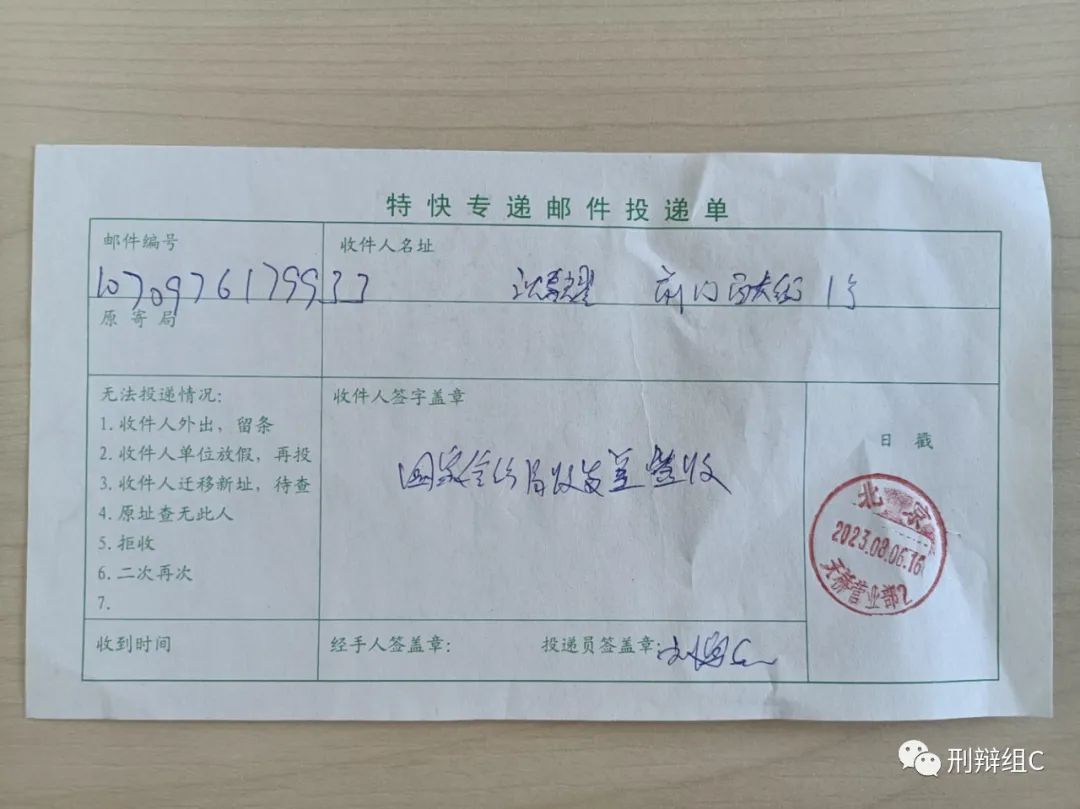 特快专递邮件投递单
邮件编号
收件人名址
1070976179933
沈春耀 前门西大街1号
原寄局
无法投递情况:
收件人签字盖章
1.收件人外出，留条
2.收件人单位放假，再投
3.收件人迁移新址，待查
4.原址查无此人
5.拒收
6.二次再次
7.
国家信访局收发室签收
日戳
北京
2023.08.06.16
天桥营业部2
收到时间
经手人签盖章:
投递员签盖章:
刑辩组C